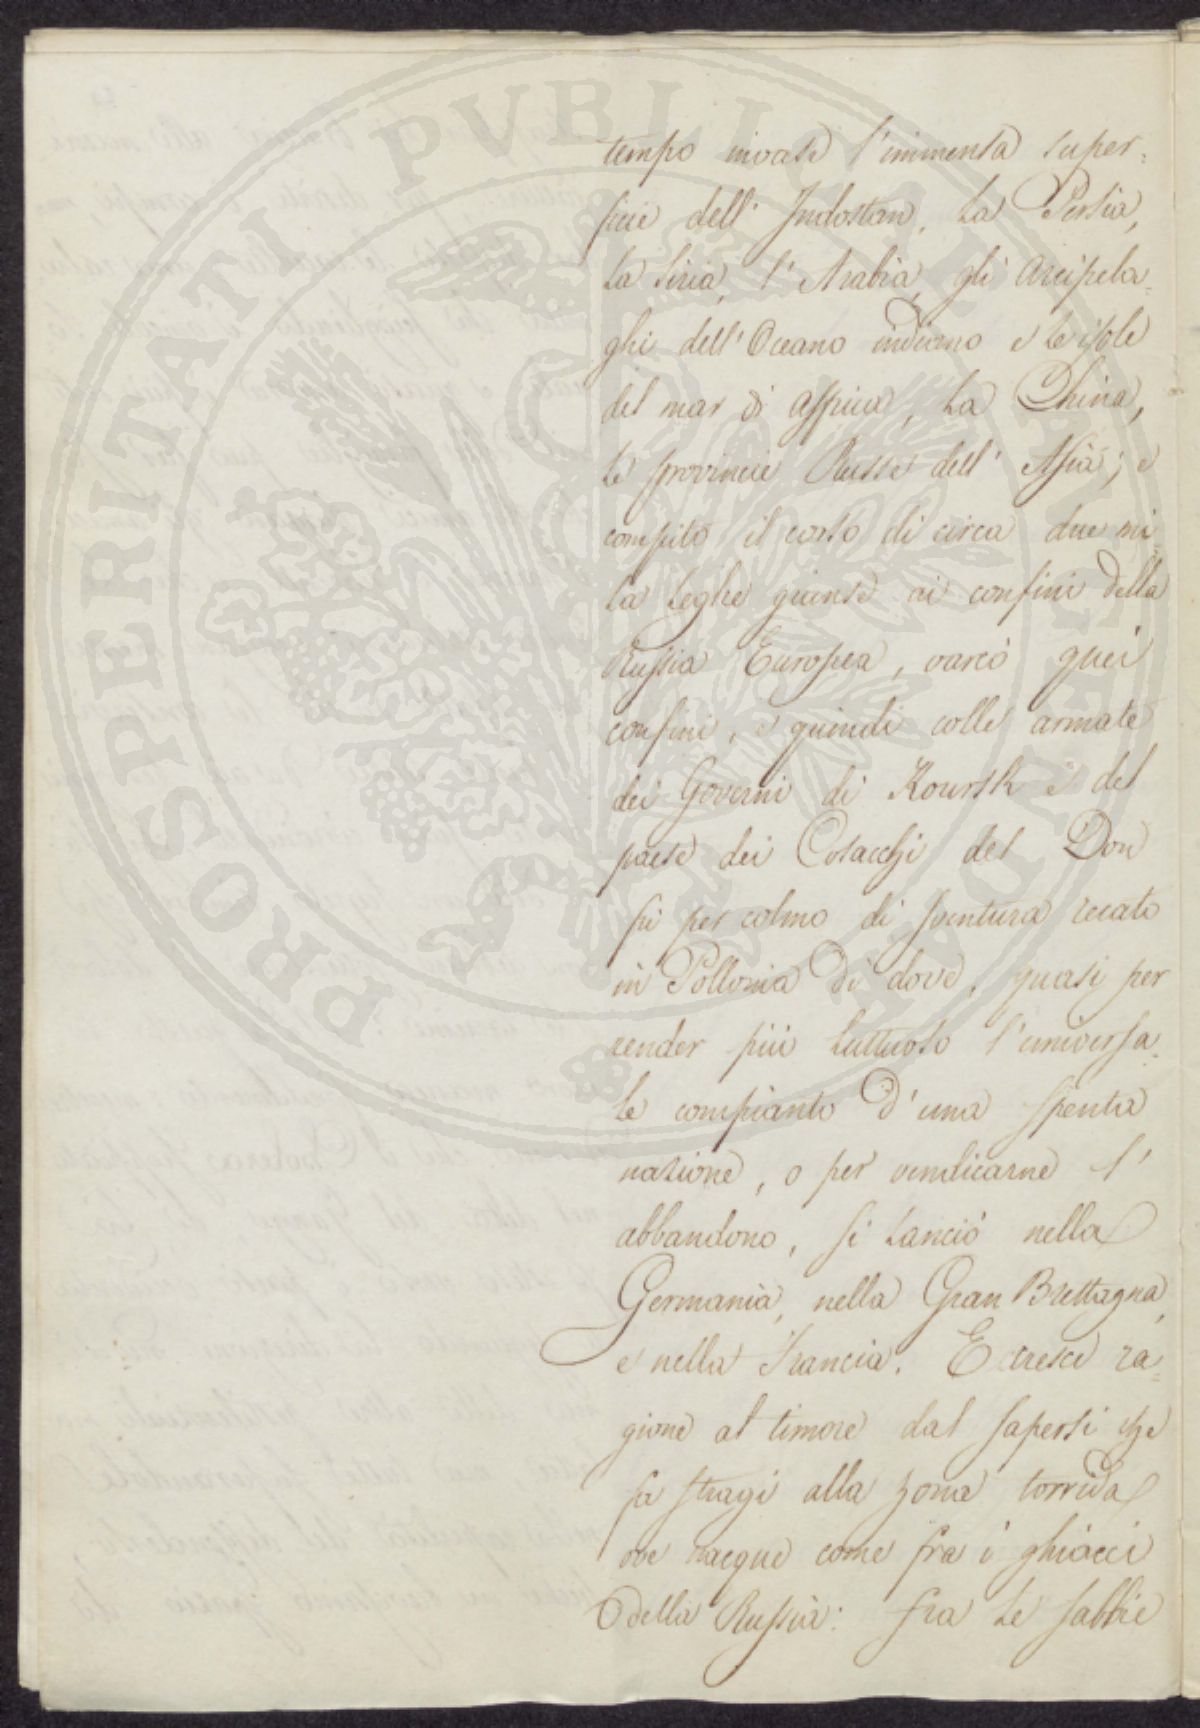 PROSPERITATI PUBLICAE AUGENDAE
tempo invase l'immensa super=
ficie dell' Indostan, la Persia,
la Siria, l'Arabia, gli Arcipela=
ghi dell'Oceano indiano e le isole
del mar di Affrica, la China,
le provincie Russe dell' Asia; e
compito il corso di circa due mi=
la leghe giunse ai confini della
Russia Europea, varcò quei
confini, e quindi colle armate
dei Governi di Koursk e del
paese dei Cosacchi del Don
fu per colmo di sventura recato
in Pollonia di dove, quasi per
render più luttuoso l'universa=
le compianto d'una spenta
nazione, o per vendicarne l'
abbandono, si lanciò nella
Germania, nella Gran Brettagna,
e nella Francia. E cresce ra=
gione al timore dal sapersi che
fa stragi alla zona torrida
ove nacque come fra i ghiacci
della Russia: fra le sabbie